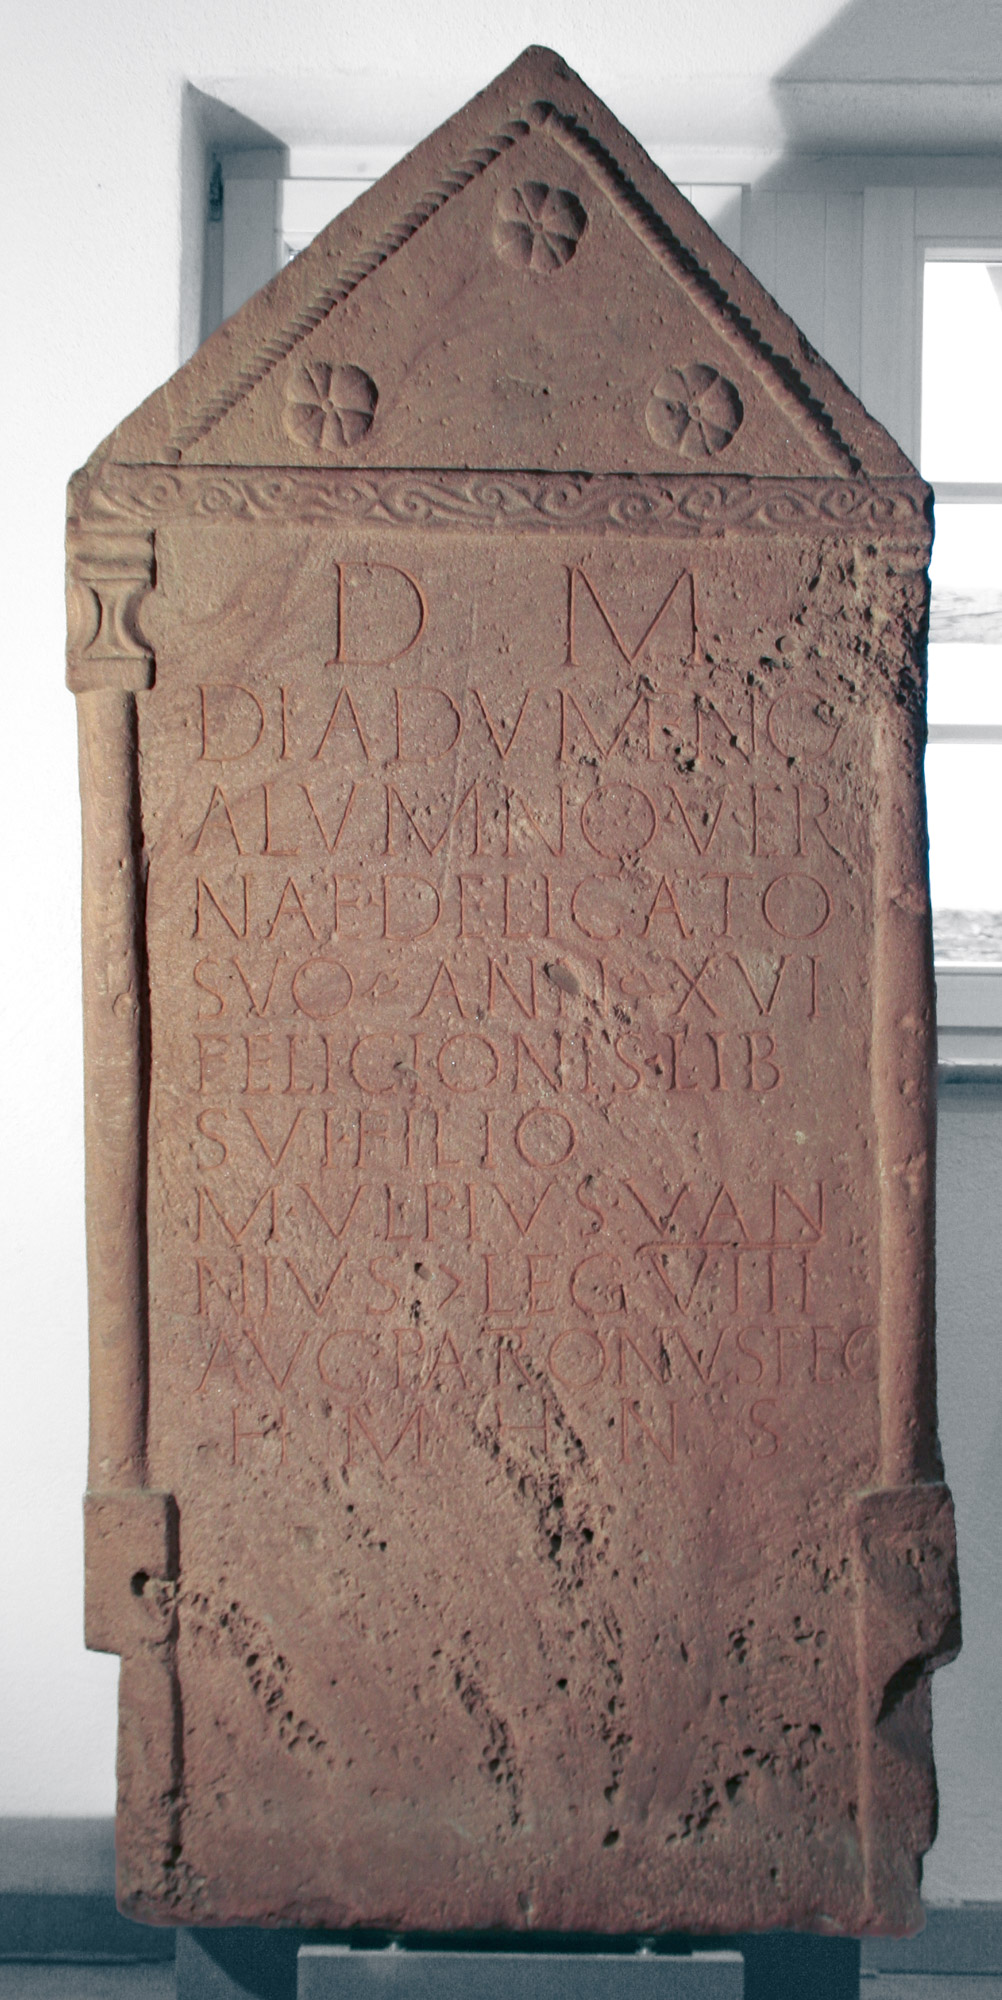 D M
DIADVMENO
ALVMNO VER
NAE DELICATO
SVO ANN XVI
FELICIONIS LIB
SVI FILIO
M VLPIVS VAN
NIVS > LEG VIII
AVG PARONVS FEC
H M H N S